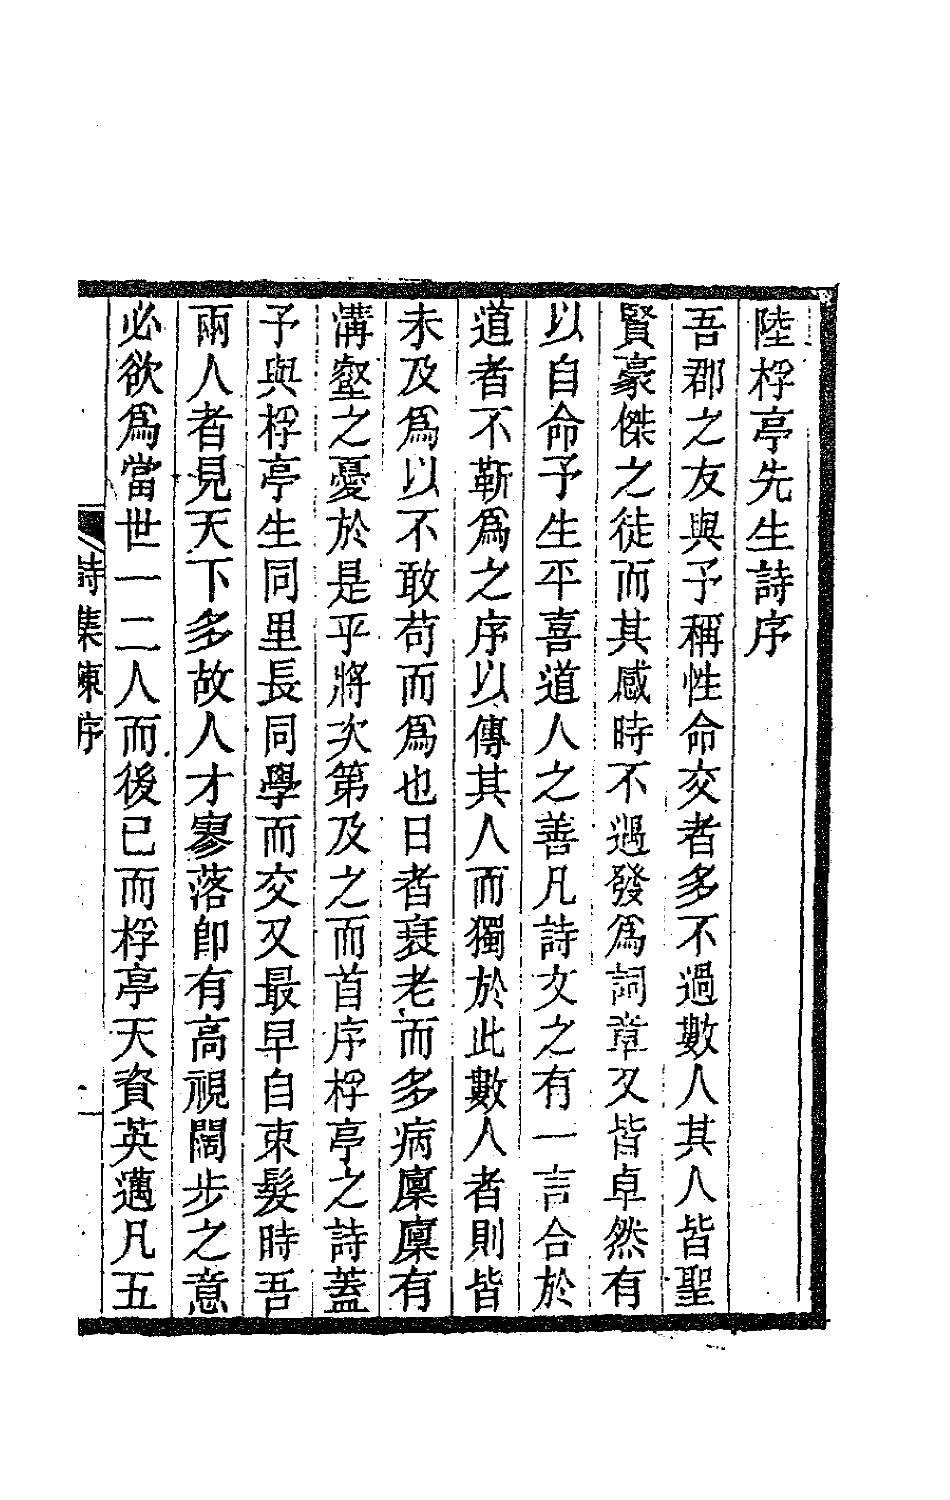 陸桴亭先生詩序
吾郡之友與予稱性命交者多不過數人其人皆聖
賢豪傑之徒而其感時不遇發爲詞章又皆卓然有
以自命予生平喜道人之善凡詩文之有一言合於
道者不靳爲之序以傳其人而獨於此數人者則皆
未及爲以不敢苟而爲也日者衰老而多病廩廩有
溝壑之憂於是乎將次第及之而首序桴亭之詩蓋
予與桴亭生同里長同學而交又最早自束髮時吾
兩人者見天下多故人才寥落卽有高視闊步之意
必欲爲當世一二人而後已而桴亭天資英邁凡五
詩集陳序
一